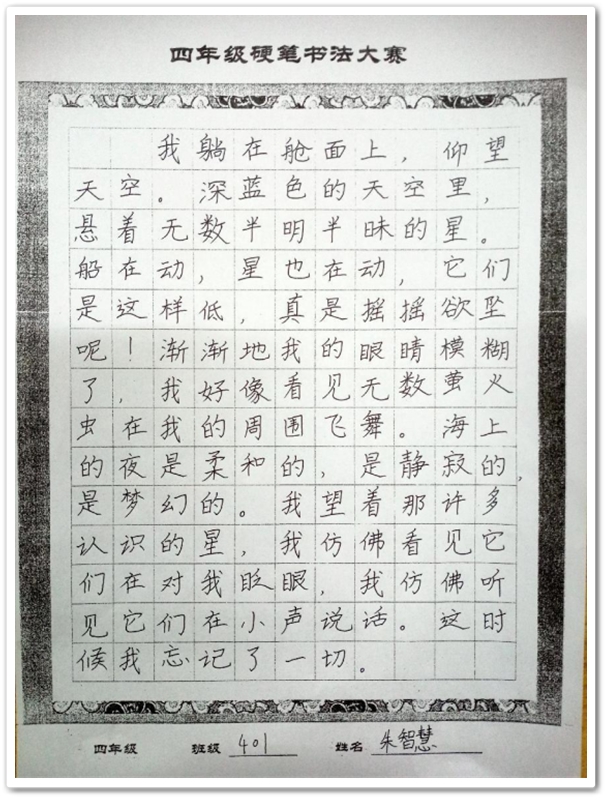 四年级硬笔书法大赛
我躺在舱面上，仰望
天空。深蓝色的天空里，
悬着无数半明半昧的星。
船在动，星也在动，它们
是这样低，真是摇摇欲坠
呢！渐渐地我的眼睛模糊
了，我好像看见无数萤火
虫在我的周围飞舞。海上
的夜是柔和的，是静寂的，
是梦幻的。我望着那许多
认识的星，我仿佛看见它
们在对我眨眼，我仿佛听
见它们在小声说话。这时
候我忘记了一切。
四年级 班级 401 姓名 朱智慧